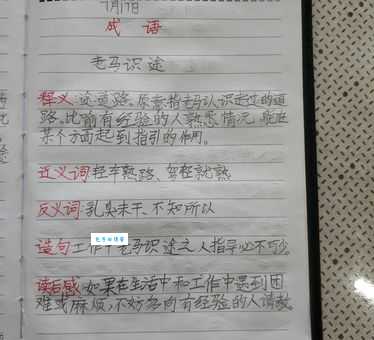 成 语
老马识途
释义:途:道路。原意指老马认识走过的道
路。比喻有经验的人熟悉情况,能在
某个方面起到指引的作用。
近义词:轻车熟路、驾轻就熟
反义词:乳臭未干、不知所以
造句:工作中老马识途之人指导必不可少。
读后感:如果在生活中和工作中遇到困
难或麻烦,不妨多向有经验的人请教。